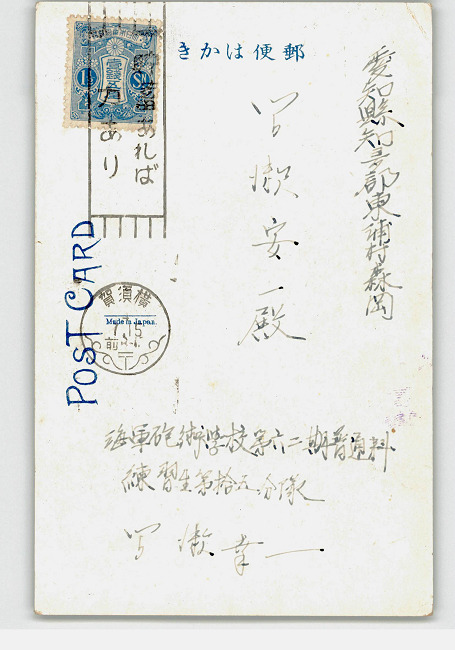 郵便はかき
愛知縣知多郡東浦村森岡
安一殿
海軍砲術学校第六二期普通科
練習生第拾五分隊
幸一
POST CARD
Made in Japan.
横須賀
あれば
あり
壹錢五厘
1½ Sn.